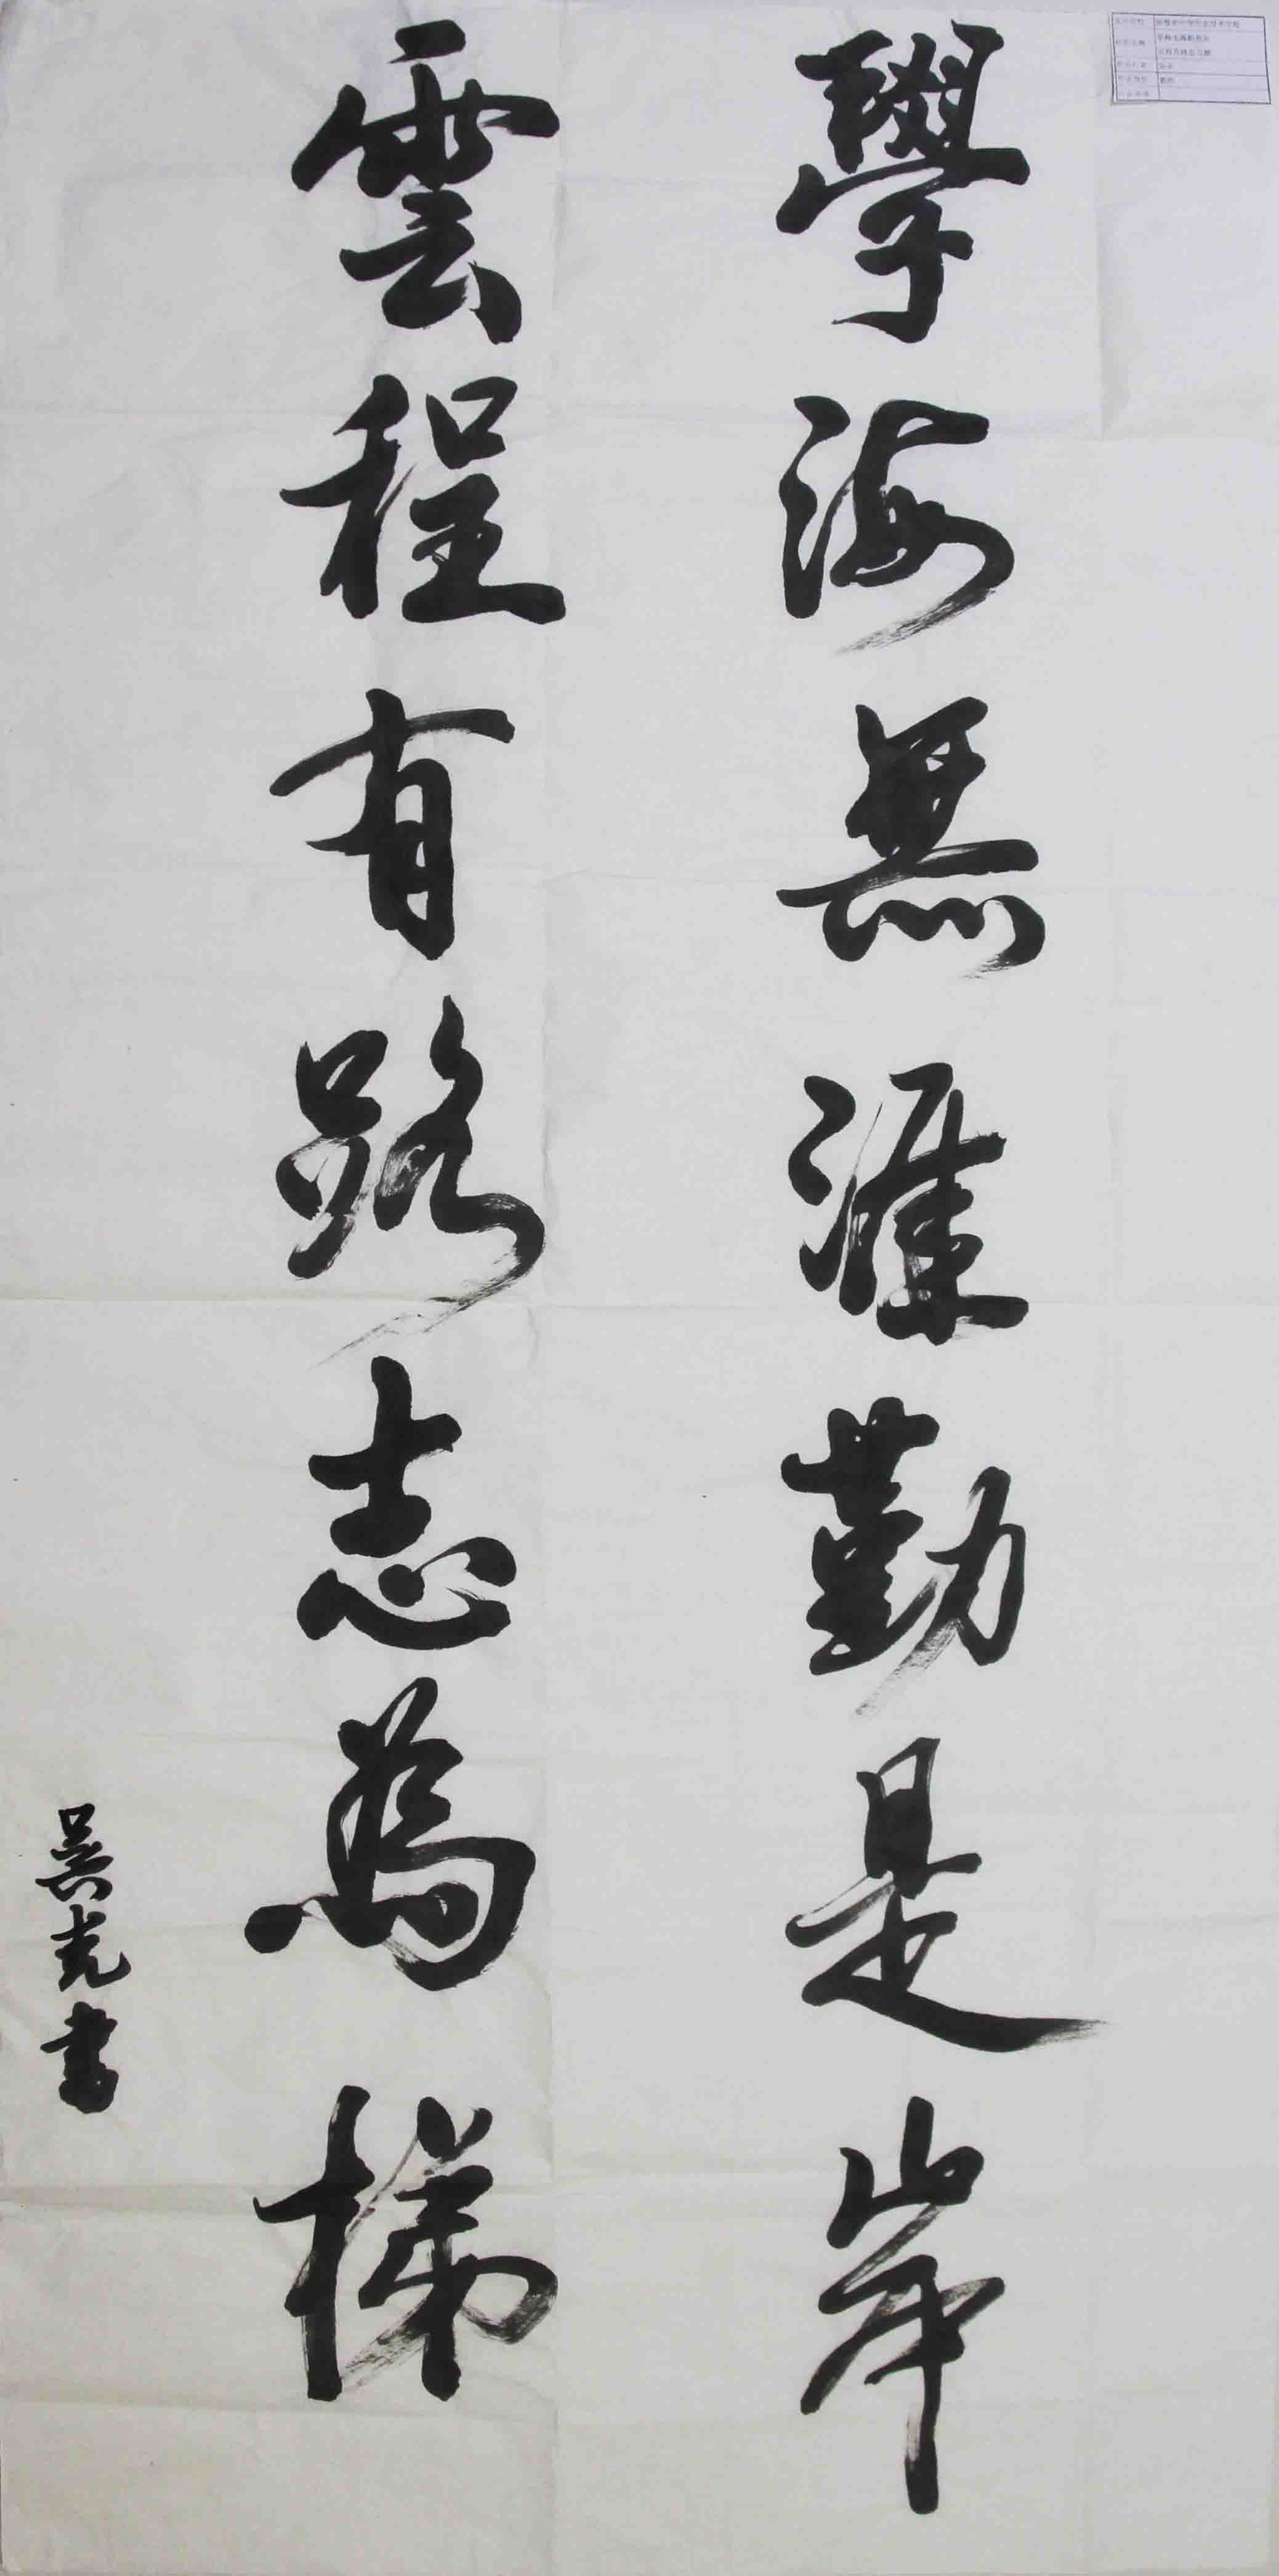 學海無涯勤是岸
雲程有路志為梯
吴光書